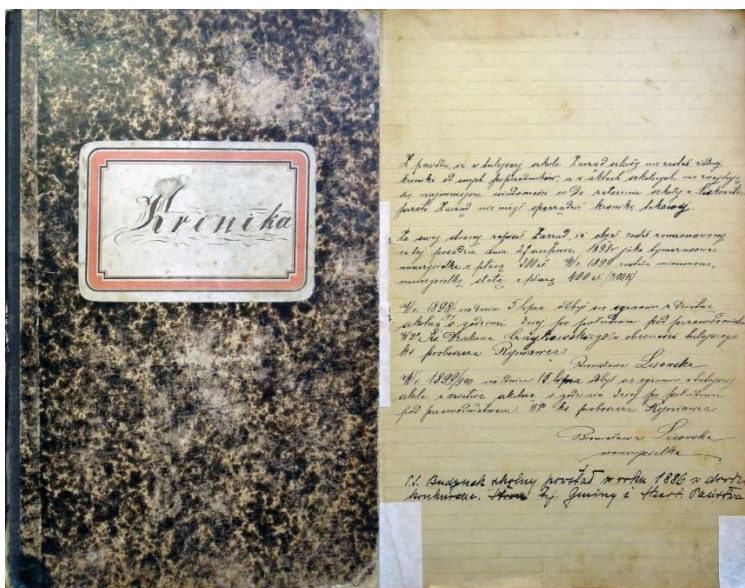 Kronika
Z powodu, iż w tutejszej szkole Zarząd szkoły nie zastał żadnej
kroniki od swych poprzedników, a w aktach szkolnych nie znajdują
się najmniejsze wiadomości co do założenia szkoły w
przeto Zarząd nie mógł sporządzić kroniki takowej.
Ze swej strony Zarząd, iż objął
posadę dnia 1898r jako tymczasowa
nauczycielka z płacą 300 zł. W r. 1899 została mianowaną
nauczycielką stałą z płacą 400 zł.
W r. 1898/ na dniu 5 lipca odbył się egzamin z dziatwą
szkolną o godzinie po południu pod przewodnictwem
Wgo Ks. Dziekana w obecności tutejszego
ks. proboszcza Rymarca
Bronisława Lisowska
W r. 1899/900 na dniu 18 lipca odbył się egzamin w tutejszej
szkole z dziatwą szkolną o godzinie po południu
pod przewodnictwem Wgo ks. proboszcza Rymarca
Bronisława Lisowska
nauczycielka
Budynek szkolny powstał w roku 1886 z
konkurencji tj. Gminy i